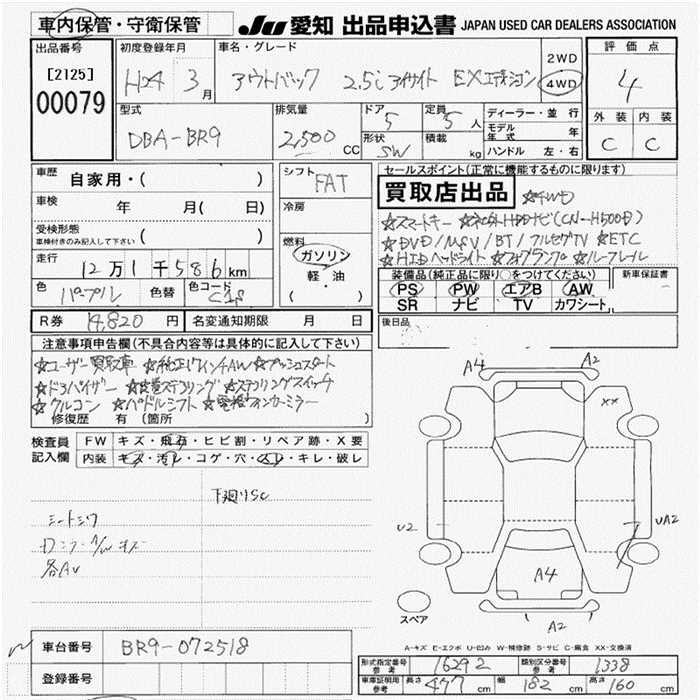 車内保管・守衛保管
JU 愛知 出品申込書 JAPAN USED CAR DEALERS ASSOCIATION
出品番号 初度登録年月 車名・グレード 2WD 評価点
[2125] H24 3月 アウトバック 2.5i アイサイト EXエディション 4WD 4
00079
型式 排気量 ドア 定員 ディーラー・並行 外装 内装
DBA-BR9 2,500 CC 5 5人 モデル年式 年 C C
形状 積載 ハンドル 左・右
SW kg
車歴 自家用・( ) シフト FAT セールスポイント(正常に機能するものに限ります)
買取店出品 ☆4WD
車検 年 月( 日) 冷房
☆スマートキー
受検形態
車検付きのみ記入して下さい ( ) 燃料 ☆DVD/MSV/BT/フルセグTV ☆ETC
ガソリン ☆HIDヘッドライト ☆フォグランプ ☆ルーフレール
走行 12万1千586km 軽・油
( )
装備品(純正品に限り○をつけてください) 新車保証書
色 パープル 色替 色コード C1S PS PW エアB AW
SR ナビ TV カワシート
R券 14,820円 名変通知期限 月 日 後日品
注意事項申告欄(不具合内容等は具体的に記入して下さい)
☆ユーザー買取車 ☆純正17インチAW ☆プッシュスタート
☆ドアバイザー ☆革巻ステアリング ☆ステアリングスイッチ
☆クルコン ☆パドルシフト ☆電格ウィンカーミラー
修復歴 有(箇所 )
検査員記入欄 FW キズ・飛石・ヒビ割・リペア跡・X要
内装 キズ・汚れ・コゲ・穴・スレ・キレ・破レ
下廻りSC
シートシワ
各AU
A4 A2
XX
U2 UA2
A4
スペア A2
A-キズ E-エクボ U-凹み W-補修跡 S-サビ C-腐食 XX-交換済
車台番号 BR9-072518
登録番号
形式指定番号 参考 16292 類別区分番号 参考 1338
車庫証明用 参考 長さ 477 cm 幅 182 cm 高さ 160 cm